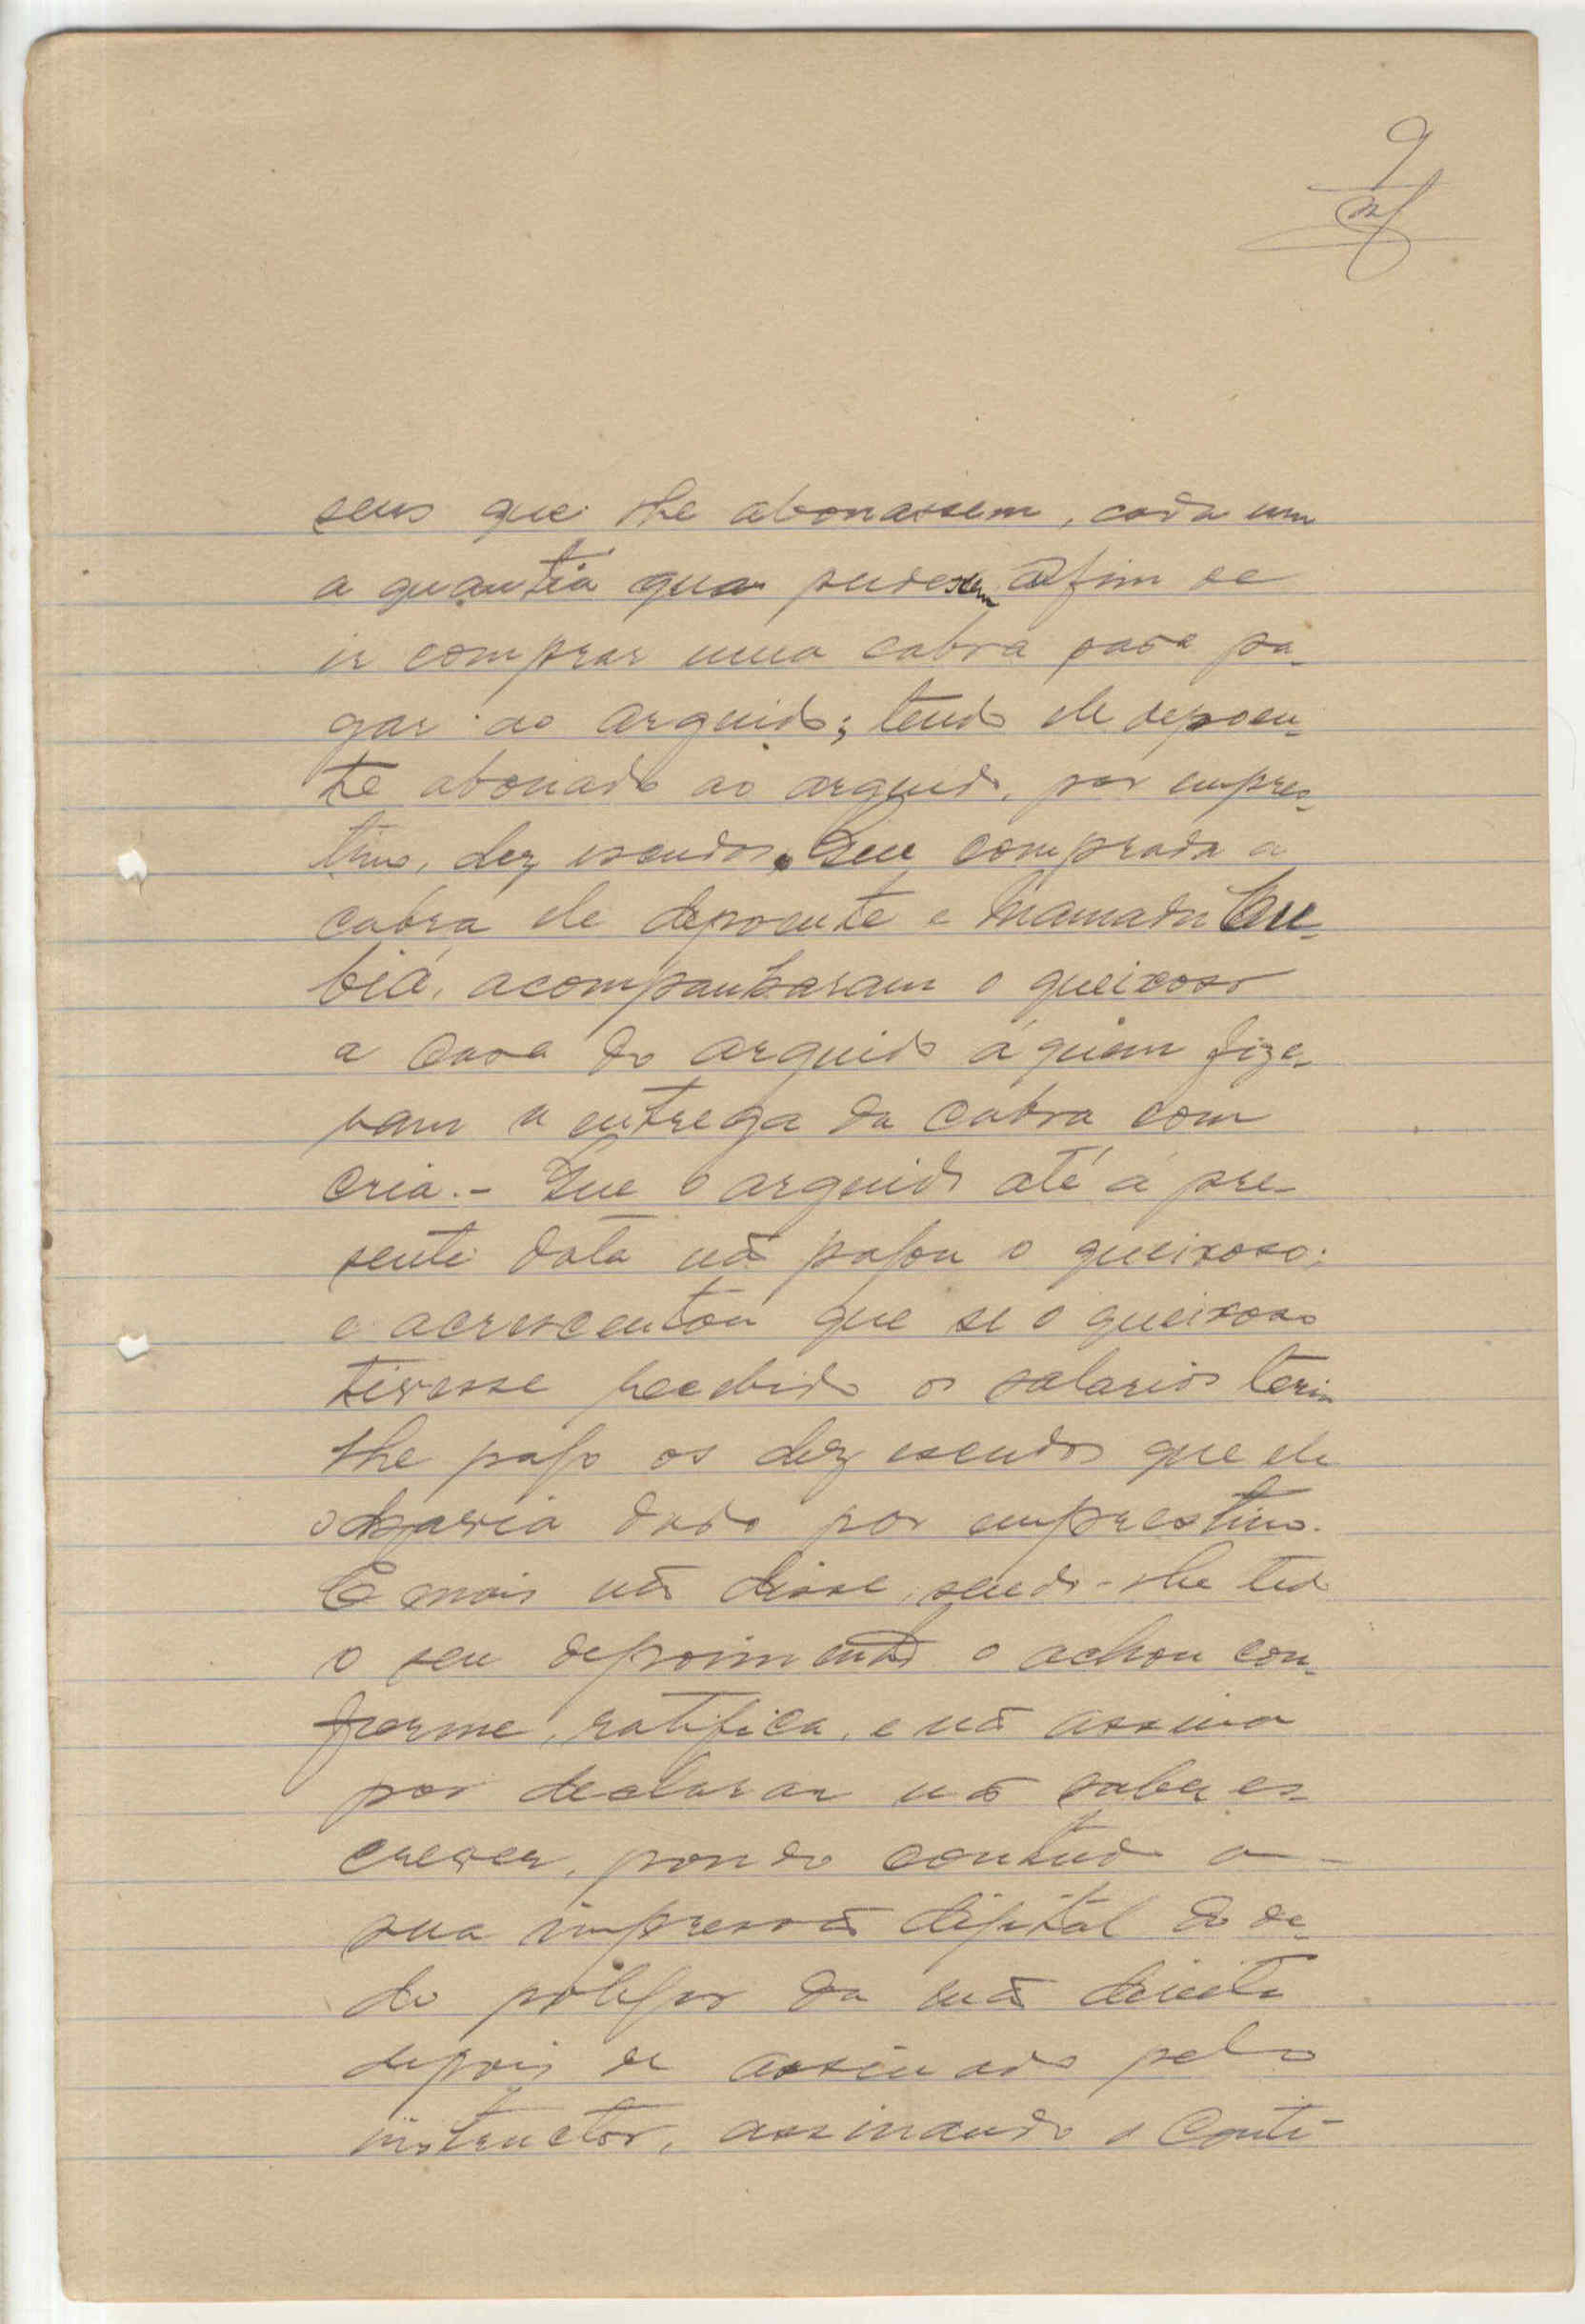 9
seus que lhe abonassem, cada um
a quantia que pudessem afim de
ir comprar uma cabra para pa-
gar ao arguido; tendo ele depoen-
te abonado ao arguido, por empres-
timo, dez escudos. Que comprada a
cabra ele depoente e Mamadu Em-
biá, acompanharam o queixoso
a casa do arguido á quem fize-
ram a entrega da cabra com
cria.- Que o arguido até á pre-
sente data não pagou o queixoso;
e acrescentou que se o queixoso
tivesse recebido os salarios teria
lhe pago os dez escudos que ele
havia dado por emprestimo.
E mais não disse, sendo-lhe lido
o seu depoimento o achou con-
forme, ratifica, e não assina
por declarar não saber es-
crever, pondo contudo a -
sua impressão digital do de-
do polegar da mão direita
depois de assinado pelo
instructor, assinando o Conti-